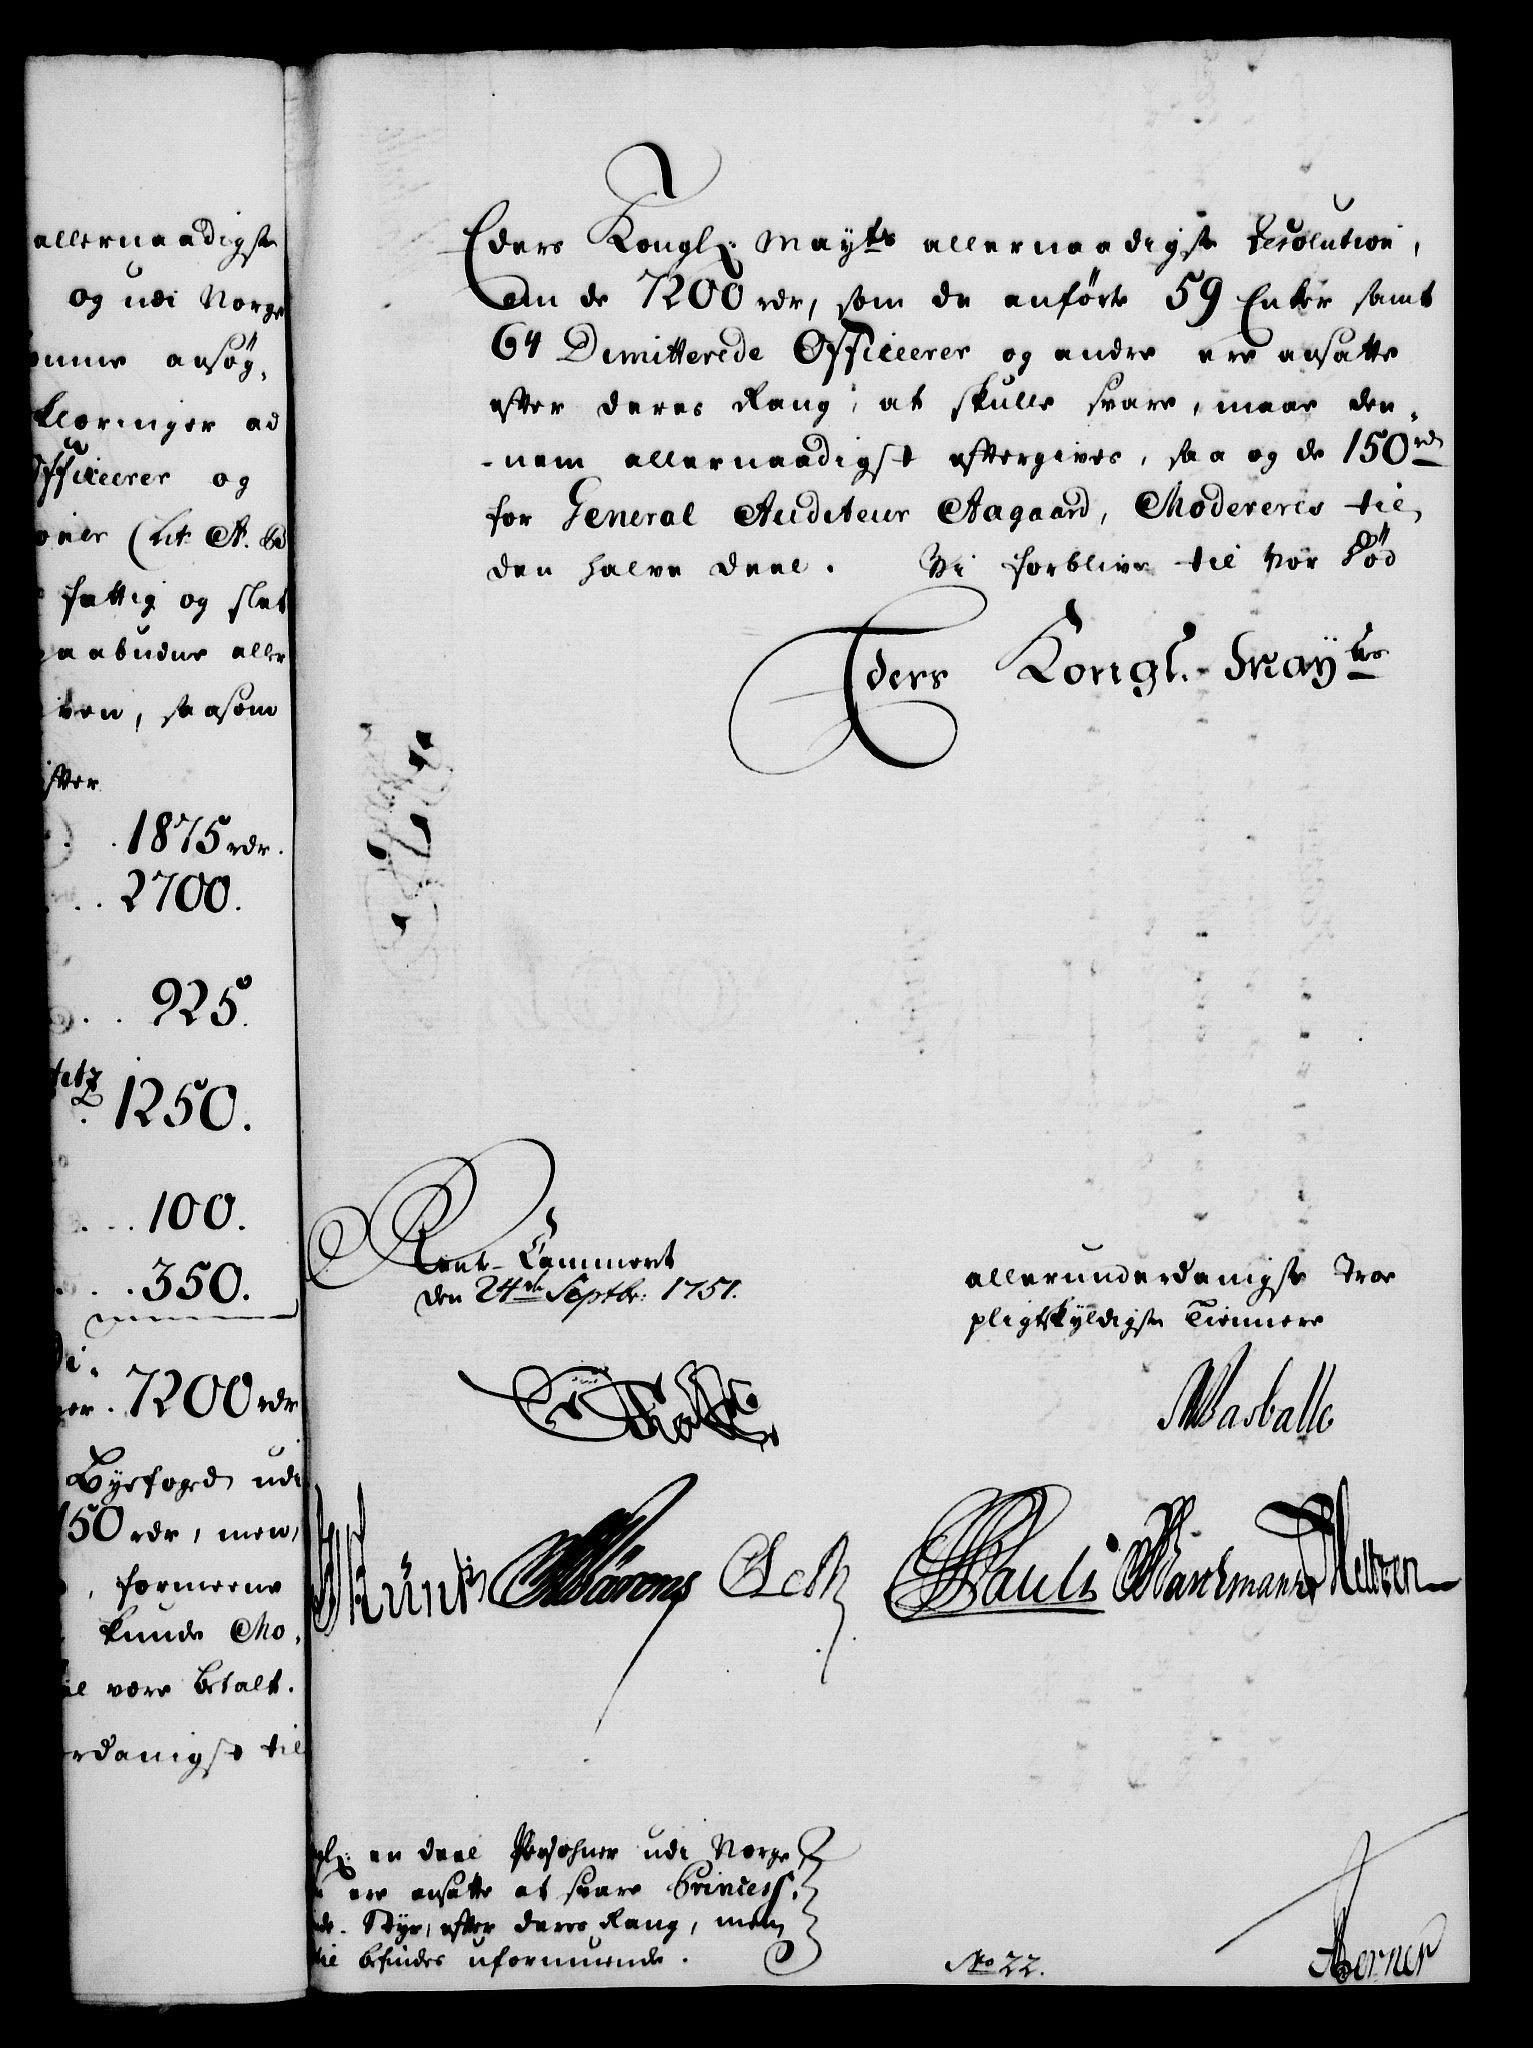 allernaadigst
og udi Norge
ansøg,
klæringer ad
Officeerer og
(Lit. A.
fattig og slet
aabudne aller
ven, saasom
efter
1875 rdr.
2700.
925.
1250.
100.
350.
7200 rdr
Byefoged udi
150 rdr, men,
formeene
kunde Mo,
være betalt.
rdanigst til
Eders Kongl: Mayts allernaadigste Resolution,
om de 7200 rdr, som de anførte 59 Enker samt
64 Dimitterede Officeerer og andre ere ansatte
efter deres Rang, at skulle svare, maae den,
-nem allernaadigst eftergives, saa og de 150 rdr
for General Auditeur Aagaard, Modereres til
den halve deel. Vi forblive til vor Død
Eders Kongl. Mayts
Rente-Cammeret
den 24de Septbr: 1751.
allerunderdanigste Troe
pligtskyldigste Tiennere
Pauli
en deel Persohner udi Norge
ere ansatte at svare Princess,
Styr, efter deres Rang, men
befindes uformuende.
No 22.